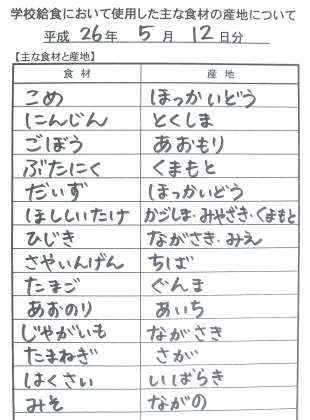 学校給食において使用した主な食材の産地について
平成 26年 5月 12日分
【主な食材と産地】
食材 産地
こめ ほっかいどう
にんじん とくしま
ごぼう あおもり
ぶたにく くまもと
だいず ほっかいどう
ほししいたけ かごしま・みやざき・くまもと
ひじき ながさき・みえ
さやいんげん ちば
たまご ぐんま
あおのり あいち
じゃがいも ながさき
たまねぎ さが
はくさい いばらき
みそ ながの